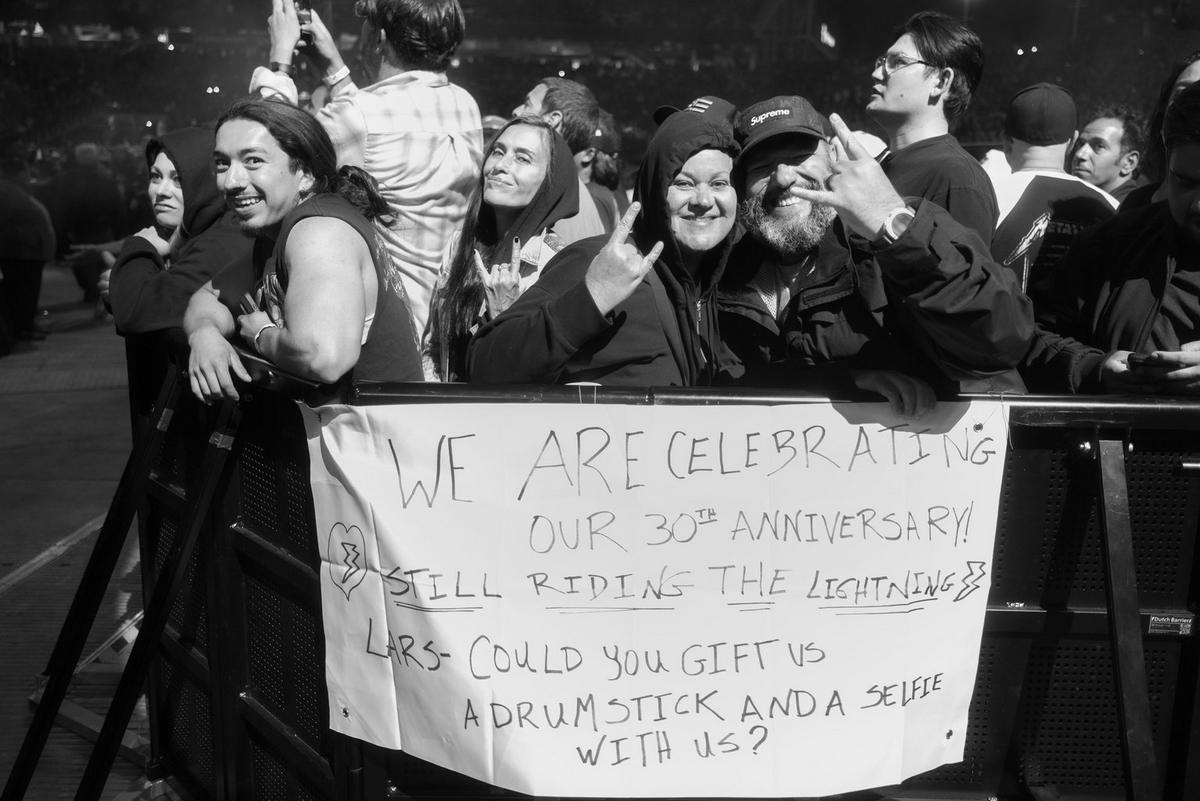 Supreme
WE ARE CELEBRATING
OUR 30TH ANNIVERSARY!
STILL RIDING THE LIGHTNING
LARS- COULD YOU GIFT US
A DRUMSTICK AND A SELFIE
WITH US?
Dutch Barriers